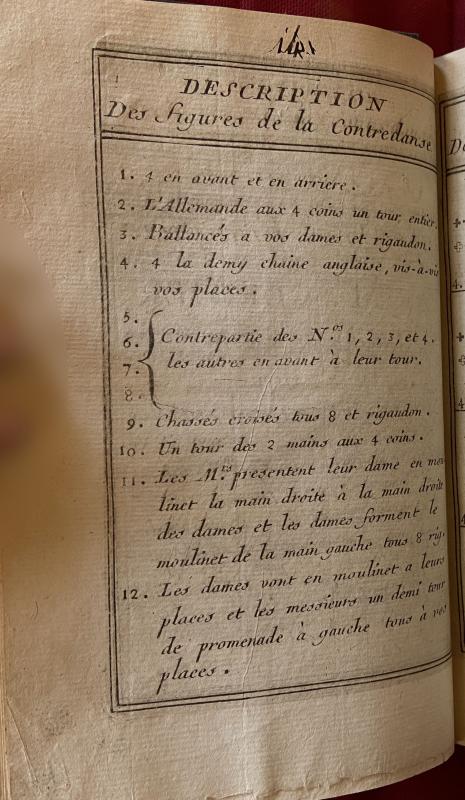 DESCRIPTION
Des figures de la Contredanse
1. 4 en avant et en arriere.
2. L'Allemande aux 4 coins un tour entier.
3. Ballancés a vos dames et rigaudon.
4. 4 la demy chaine anglaise, vis-à-vis
vos places.
5.
6. Contrepartie des N.os 1, 2, 3, et 4.
7. les autres en avant à leur tour.
8.
9. Chassés croisés tous 8 et rigaudon.
10. Un tour des 2 mains aux 4 coins.
11. Les M.rs presentent leur dame en mou
linet la main droite à la main droite
des dames et les dames forment le
moulinet de la main gauche tous 8 rig.
12. Les dames vont en moulinet a leurs
places et les messieurs un demi tour
de promenade à gauche tous à vos
places.